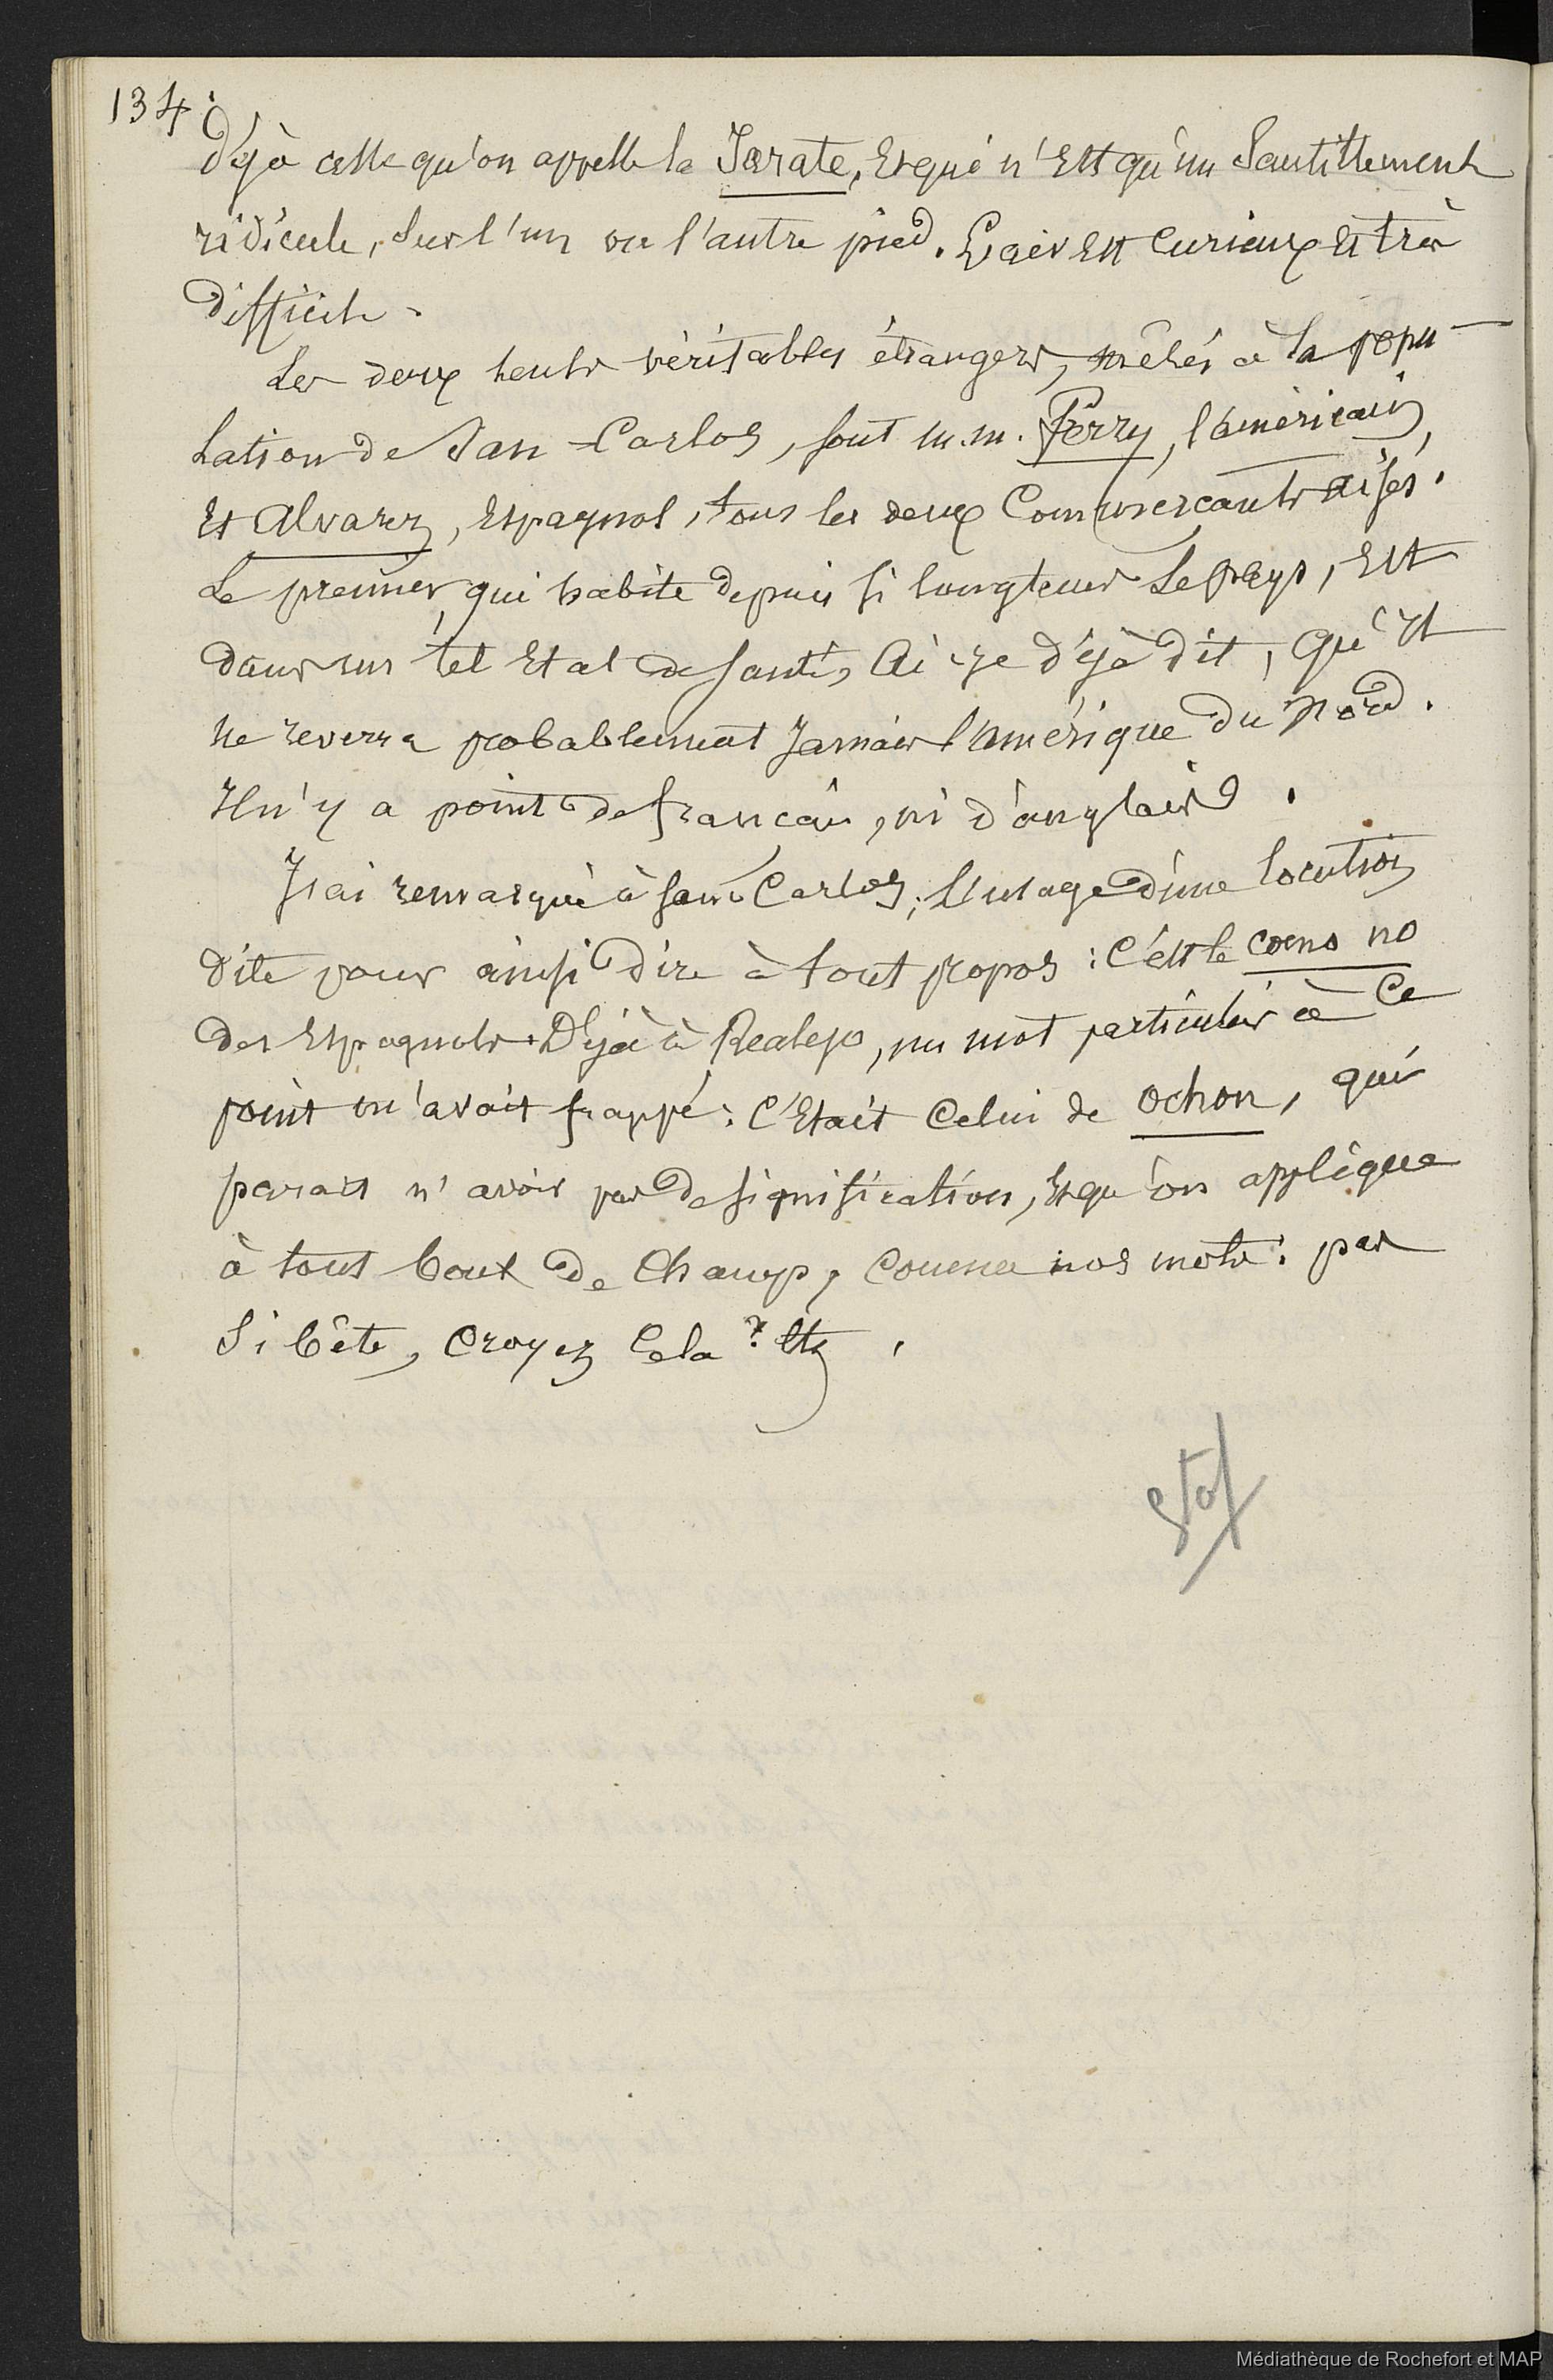 134.
Déjà celle qu'on appelle la Jarate, Et qui n'Est qu'un Sautillement
ridicule, sur l'un ou l'autre pied. L'air Est Curieux Et très
difficile.
Les deux seuls véritables étrangers, mêlés à la popu-
lation de San-Carlos, sont m.m. Ferry, l'américain,
Et Alvarez, Espagnol, tous les deux Commercants aisés.
Le premier, qui habite depuis si longtems le pays, Est
dans un tel Etat de santé, Ai-je déjà dit, qu'Il
ne reverra probablement Jamais l'amérique du Nord.
Il n'y a point de francais, ni d'anglais.
J'ai remarqué à San Carlos, l'usage d'une locution
dite pour ainsi dire à tout propos: C'est le como no
des Espagnols. Déjà à Realejo, un mot particulier à Ce
point m'avait frappé: C'Etait Celui de ochon, qui
parait n'avoir pas de signification, Et qu'on applique
à tout bout de Champ, Comme nos mots: pas
si bête, Croyez Cela? Etc.
Médiathèque de Rochefort et MAP